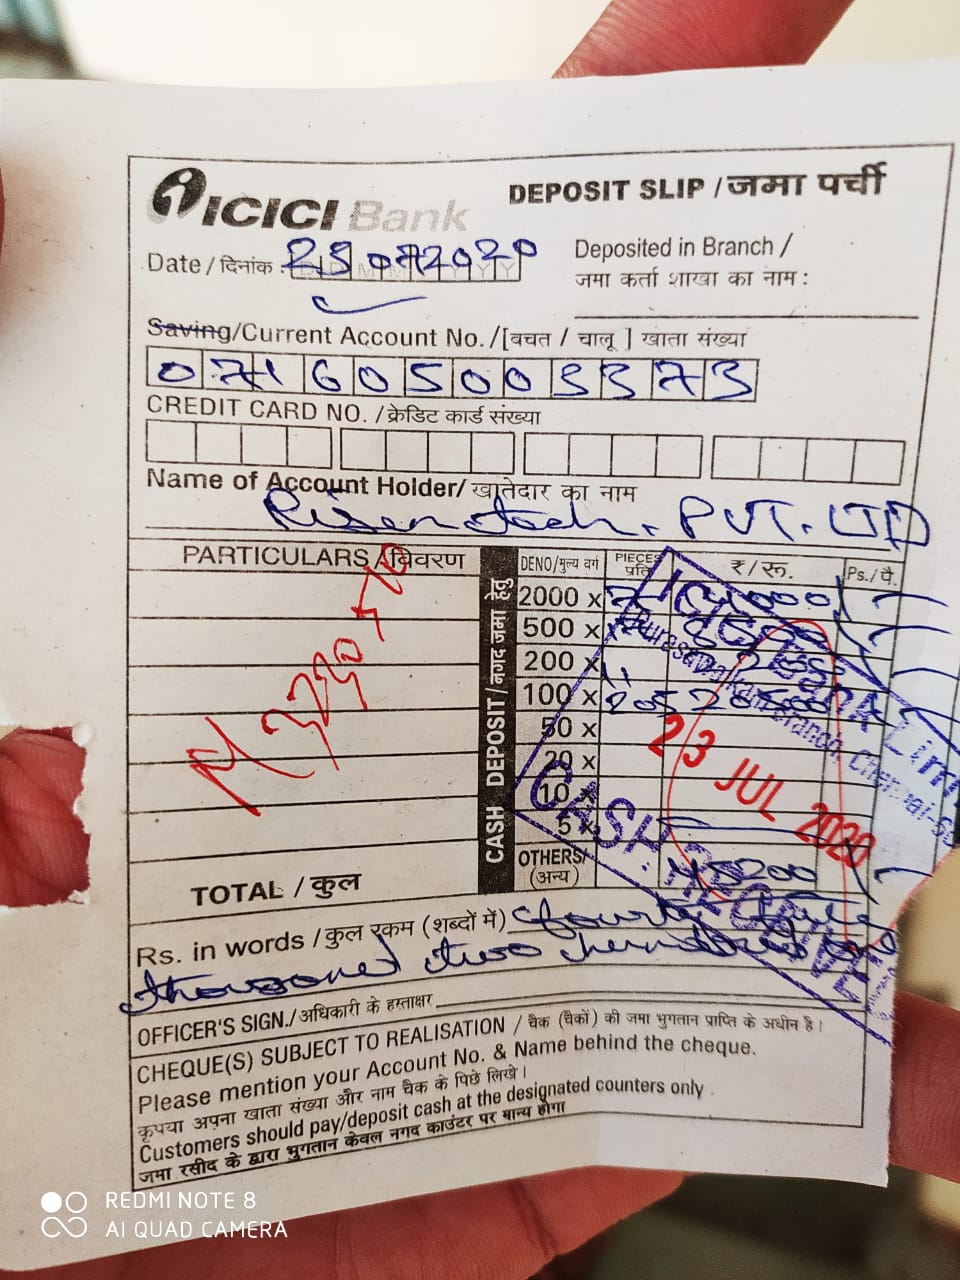 ICICI Bank
DEPOSIT SLIP / जमा पर्ची
Date / दिनांक : 23072020
Deposited in Branch /
जमा कर्ता शाखा का नाम :
Saving/Current Account No./[बचत / चालू ] खाता संख्या
071605003373
CREDIT CARD NO. / क्रेडिट कार्ड संख्या
Name of Account Holder/ खातेदार का नाम
PVT. LTD
PARTICULARS / विवरण
CASH DEPOSIT / नगद जमा हेतु
DENO/मुल्य वर्ग PIECES प्रति ₹/रू. Ps./पै.
2000 x 7 14000/-
500 x
200 x
100 x 205 20500
50 x
20 x
10 x
5 x
OTHERS/ (अन्य)
45200/-
TOTAL / कुल
ICICI Bank Limi
Purasawalkam Branch, Chennai-
23 JUL 2020
CASH RECEIVE
Rs. in words / कुल रकम (शब्दों में) fourty five
thousand two hundred
OFFICER'S SIGN./अधिकारी के हस्ताक्षर
CHEQUE(S) SUBJECT TO REALISATION / चैक (चैकों) की जमा भुगतान प्राप्ति के अधीन है।
Please mention your Account No. & Name behind the cheque.
कृपया अपना खाता संख्या और नाम चैक के पिछे लिखे।
Customers should pay/deposit cash at the designated counters only
जमा रसीद के द्वारा भुगतान केवल नगद काउंटर पर मान्य होगा
REDMI NOTE 8
AI QUAD CAMERA